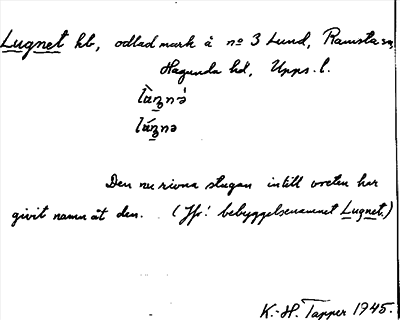 Lugnet hb, odlad mark å nº 3 Lund, Ramsta sn,
Hagunda hd, Upps. l.
Den nu rivna stugan intill vreten har
givit namn åt den. (Jfr! bebyggelsenamnet Lugnet.)
K.-H. Tapper 1945.